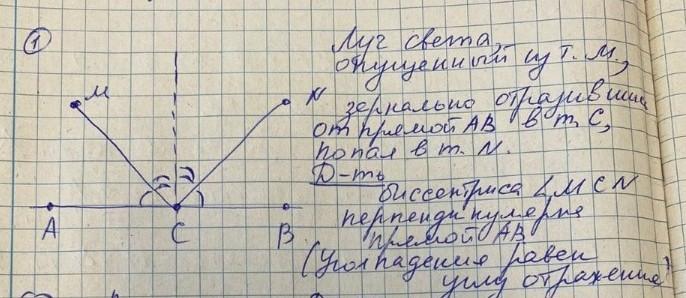 1
Луч света,
опущенный из т. M,
зеркально отразившись
от прямой AB в т. C,
попал в т. N.
Д-ть
биссектриса ∠MCN
перпендикулярна
прямой AB
(Угол падения равен
углу отражения)
M
N
A
C
B